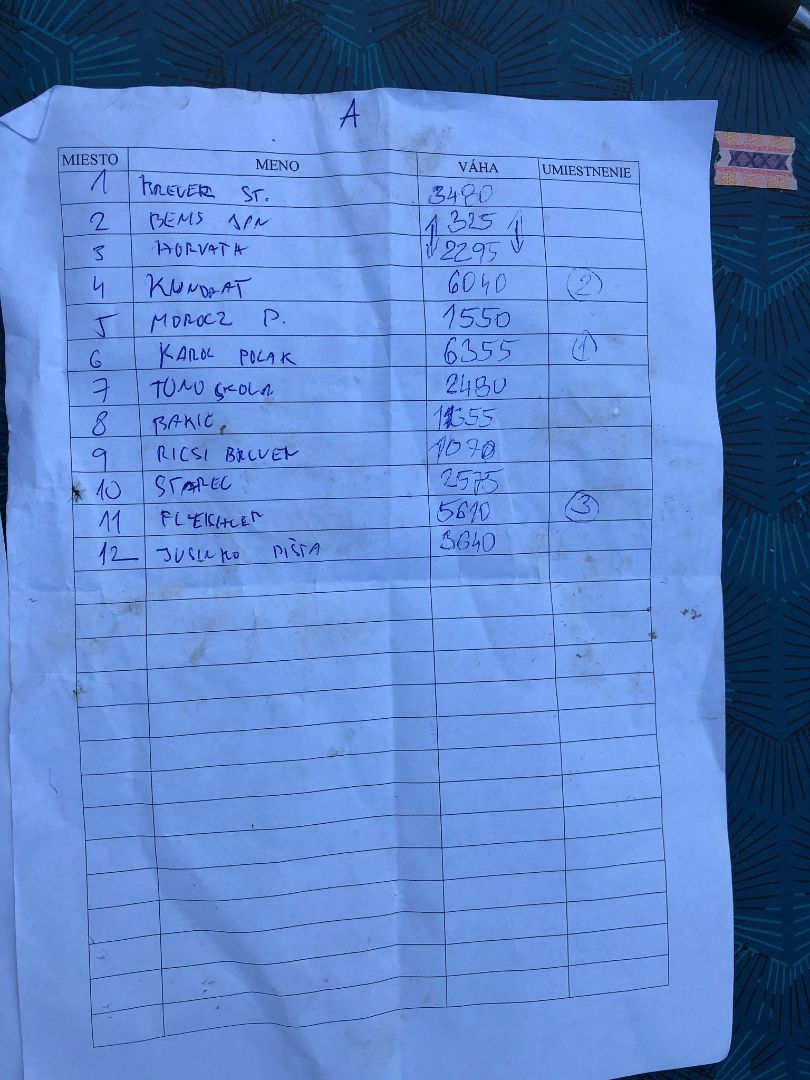 A
MIESTO MENO VÁHA UMIESTNENIE
1 BREUER ST. 3480
2 BENS 325
3 HORVATH 2295
4 6040 2
5 MOROCZ P. 1550
6 KAROL POLAK 6355 1
7 TONO SKOLA 2480
8 1355
9 RICSI BREUER 1070
10 STAREC 2575
11 5610 3
12 PIŠTA 3640